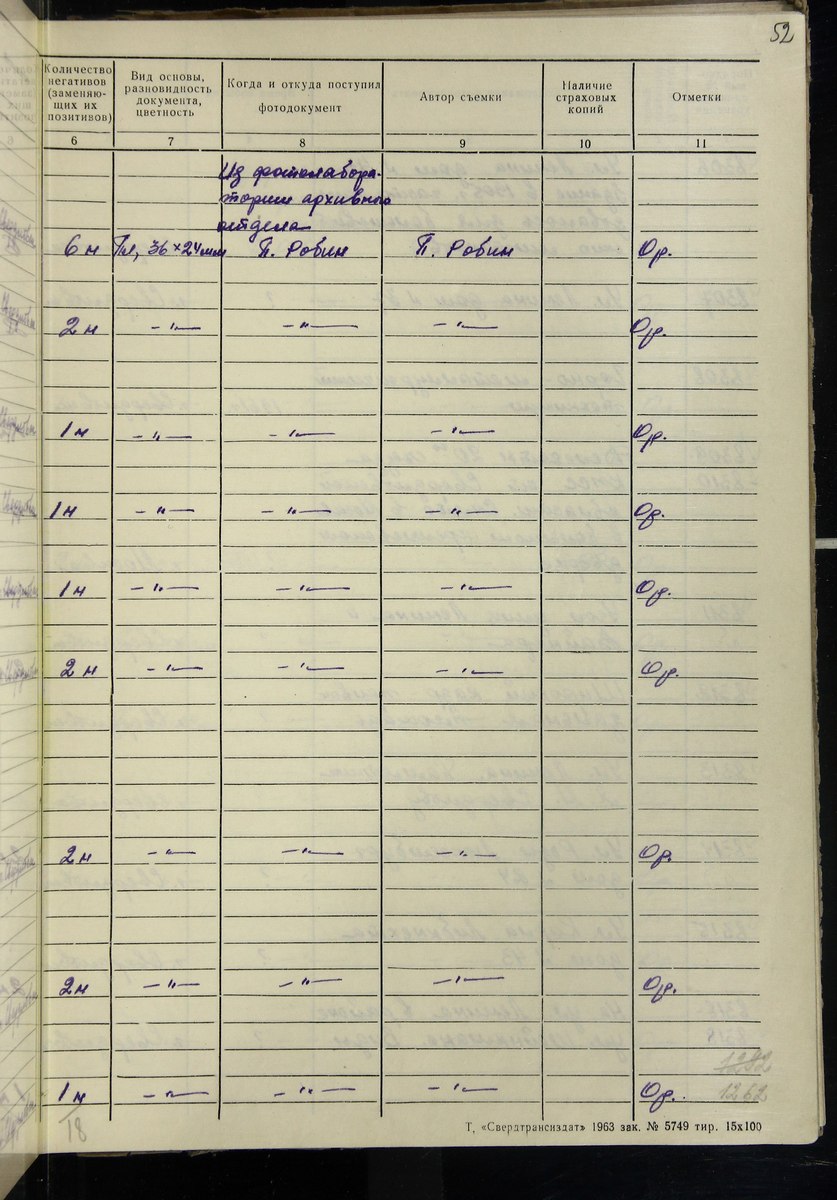 52
Количество негативов (заменяю- щих их позитивов)
Вид основы, разновидность документа, цветность
Когда и откуда поступил фотодокумент
Автор съемки
Наличие страховых копий
Отметки
6 7 8 9 10 11
Из фотолабора-
тории архивного
отдела
6 н Пл, 36×24мм П. Робин П. Робин Ор.
2 н —"— —"— —"— Ор.
1 н —"— —"— —"— Ор.
1 н —"— —"— —"— Ор.
1 н —"— —"— —"— Ор.
2 н —"— —"— —"— Ор.
2 н —"— —"— —"— Ор.
2 н —"— —"— —"— Ор.
1282
1 н —"— —"— —"— Ор. 1262
18
Т, «Свердтрансиздат» 1963 зак. № 5749 тир. 15х100